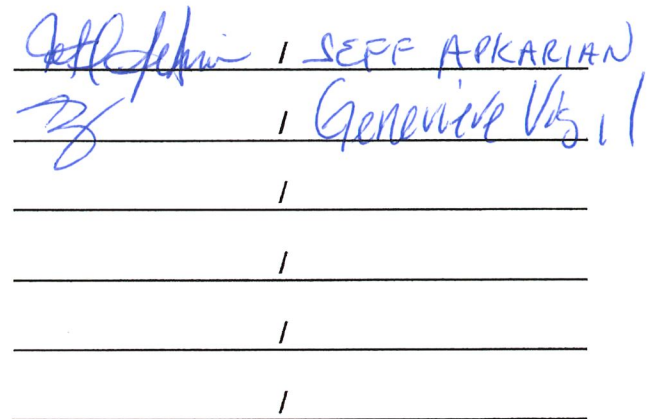 / JEFF APKARIAN
/ Genevieve Vigil
/
/
/
/